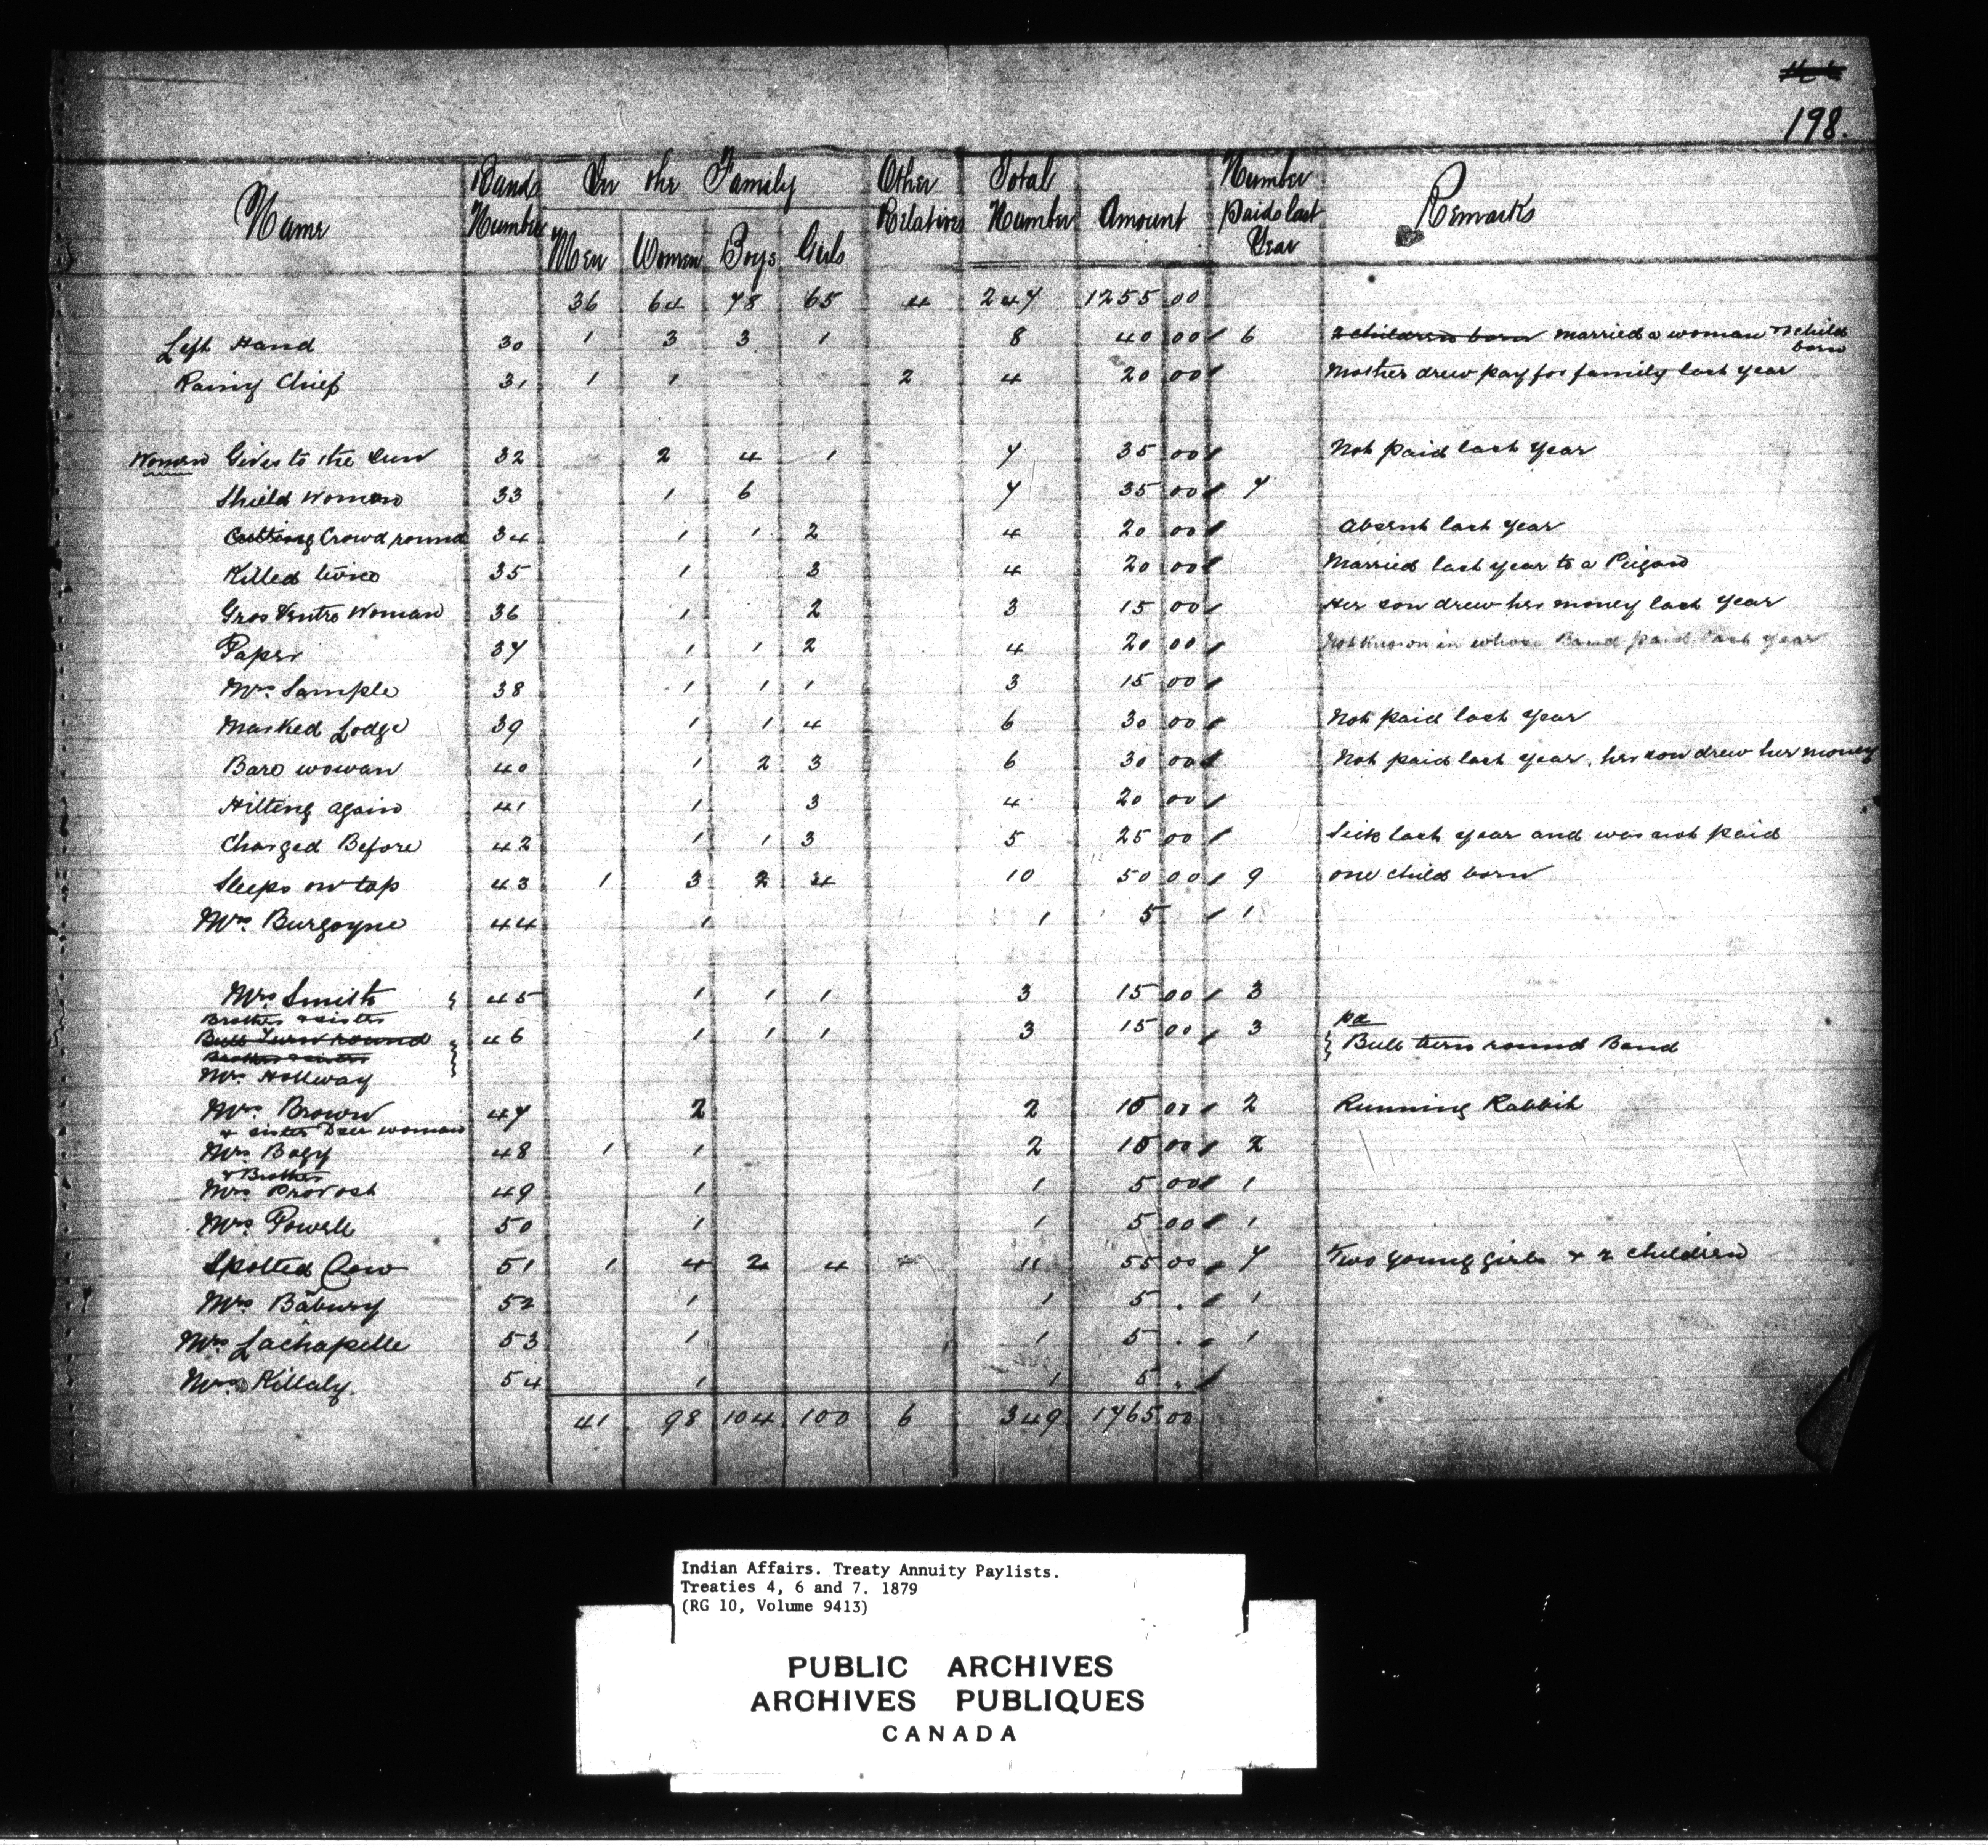 198.
Name Band Number In the Family Other Relatives Total Number Amount Number Paid last Year Remarks
Men Women Boys Girls
36 64 78 65 4 247 1255 00
Left Hand 30 1 3 3 1 8 40 00 6 2 children born married a woman & child born
Rainy Chief 31 1 1 2 4 20 00 Mother drew pay for family last year
Women Gives to the Sun 32 2 4 1 7 35 00 Not paid last year
Shield Woman 33 1 6 7 35 00 7
Cutting Crowd round 34 1 1 2 4 20 00 Absent last year
Killed twice 35 1 3 4 20 00 Married last year to a Peigan
Gros Ventre Woman 36 1 2 3 15 00 Her son drew her money last year
37 1 1 2 4 20 00 Not known in whose Band paid last year
Mrs. Sample 38 1 1 1 3 15 00
Masked Lodge 39 1 1 4 6 30 00 Not paid last year
Bare wowan 40 1 2 3 6 30 00 Not paid last year, her son drew her money
Hitting again 41 1 3 4 20 00
Charged Before 42 1 1 3 5 25 00 Sick last year and was not paid
Sleeps on top 43 1 3 2 4 10 50 00 9 one child born
Mrs. Burgoyne 44 1 1 5 1
Mrs Smith 45 1 1 1 3 15 00 3
Brother & sister
Bull Turn round 46 1 1 1 3 15 00 3 Bull turn round Band
Brother & sister
Mrs. Hollway
Mrs. Brown 47 2 2 10 00 2 Running Rabbit
& sister Deer woman
Mrs Bogy 48 1 1 2 10 00 2
& Brother
Mrs Provost 49 1 1 5 00 1
Mrs Powell 50 1 1 5 00 1
Spotted Cow 51 1 4 2 4 11 55 00 7 Two young girls & 2 children
Mrs Babury 52 1 1 5 . 1
Mrs Lachapelle 53 1 1 5 . 1
Mrs Killaly. 54 1 1 5 .
41 98 104 100 6 349 1765 00
Indian Affairs. Treaty Annuity Paylists.
Treaties 4, 6 and 7. 1879
(RG 10, Volume 9413)
PUBLIC ARCHIVES
ARCHIVES PUBLIQUES
CANADA